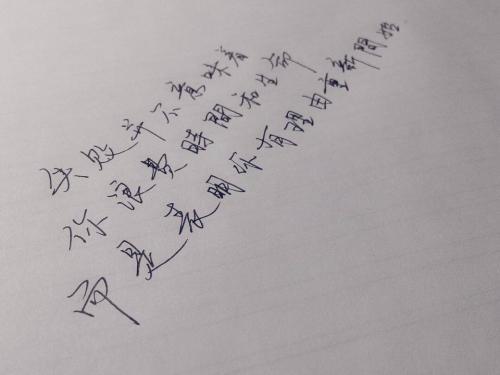 失败并不意味着
你浪费時間和生命
而是表明你有理由重新開始